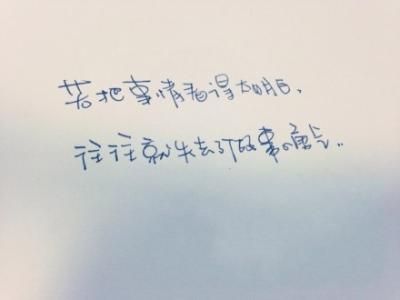 若把事情看得太明白.
往往就失去了做事的勇气..